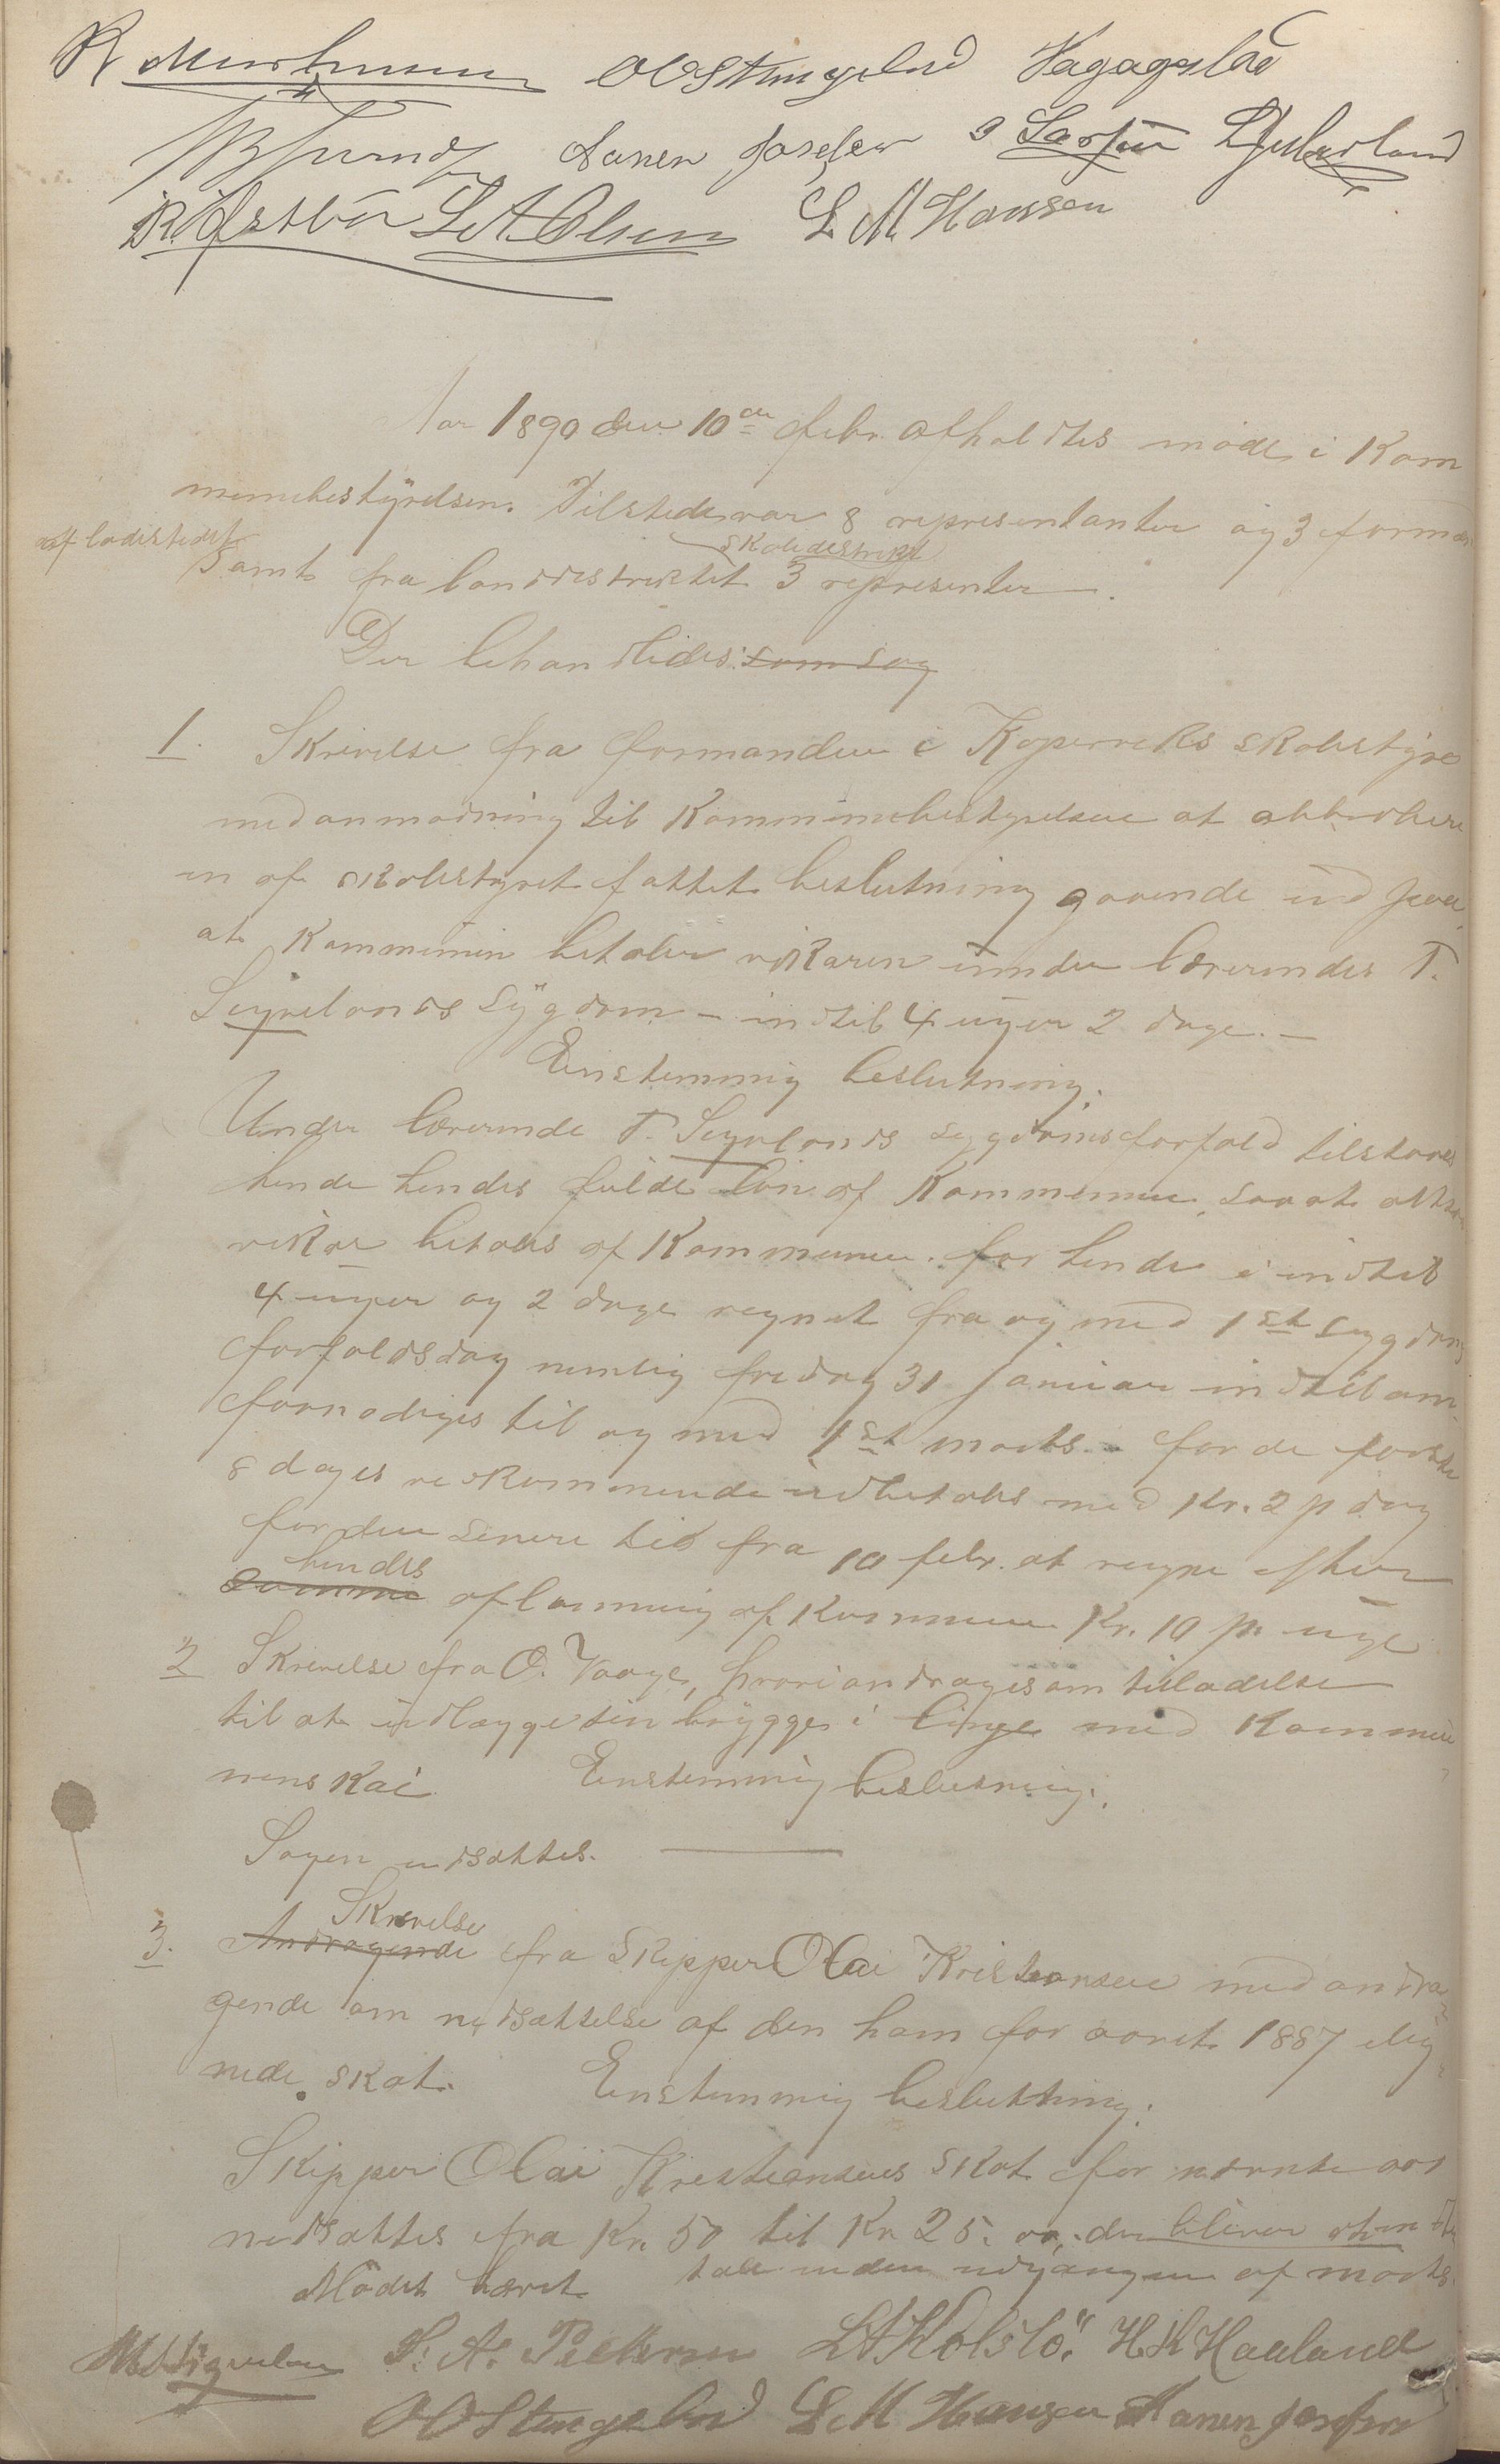 R
OO Stangeland
Janen Josefsen
L A Olsen L M Hansen
Aar 1890 den 10de febr. afholdtes møde i Kom
munebestyrelsen. Tilstede var 8 representanter og 3 formænd
af ladestedet
skoledistrikt
Samt fra landdistriktet 3 representer.
Der behandledes: som sag
1. Skrivelse fra formanden i Koperviks skolestyre
med anmodning til Kommunebestyrelsen at approbere
en af skolestyret fattet beslutning gaaende ud paa,
at Kommunen betaler vikaren under lærerindes T.
Lygrelands sygdom - indtil 4 uger 2 dage. -
Enstemmig beslutning:
Under lærerinde T. sygdomsforfald tilstaaes
hende hendes fulde løn af Kommunen, saa at
vikar betales af Kommunen for hende i indtil
4 uger og 2 dage regnet fra og med 1ste sygdoms
forfaldsdag nemlig fredag 31 januar indtil om
fornødiges til og med 1st marts - for de første
8 dages vedkommende udbetales med Kr. 2 p dag
for den senere tid fra 10 febr. at regne efter
hendes
samme aflønning af Kommunen Kr. 10 p. uge
2 Skrivelse fra O. Vaage, hvori andrages om tilladelse
til at udlægge sin brygge i linje med Kommu
nens Kai Enstemmig beslutning:
Sagen udsættes.
Skrivelse
3. Andragende fra Skipper Olai Kristiansen med andra
gende om nedsættelse af den ham for aaret 1887 ilig
nede skat. Enstemmig beslutning:
Skipper Olai Kristiansens skat for nævnte aar
nedsættes fra Kr. 50 til Kr 25. der bliver at
tale inden udgangen af marts.
Mødet hævet
S. A. Pedersen L A Kolstø. H K Hauland
OO Stangeland L M Hansen Janen Josefsen